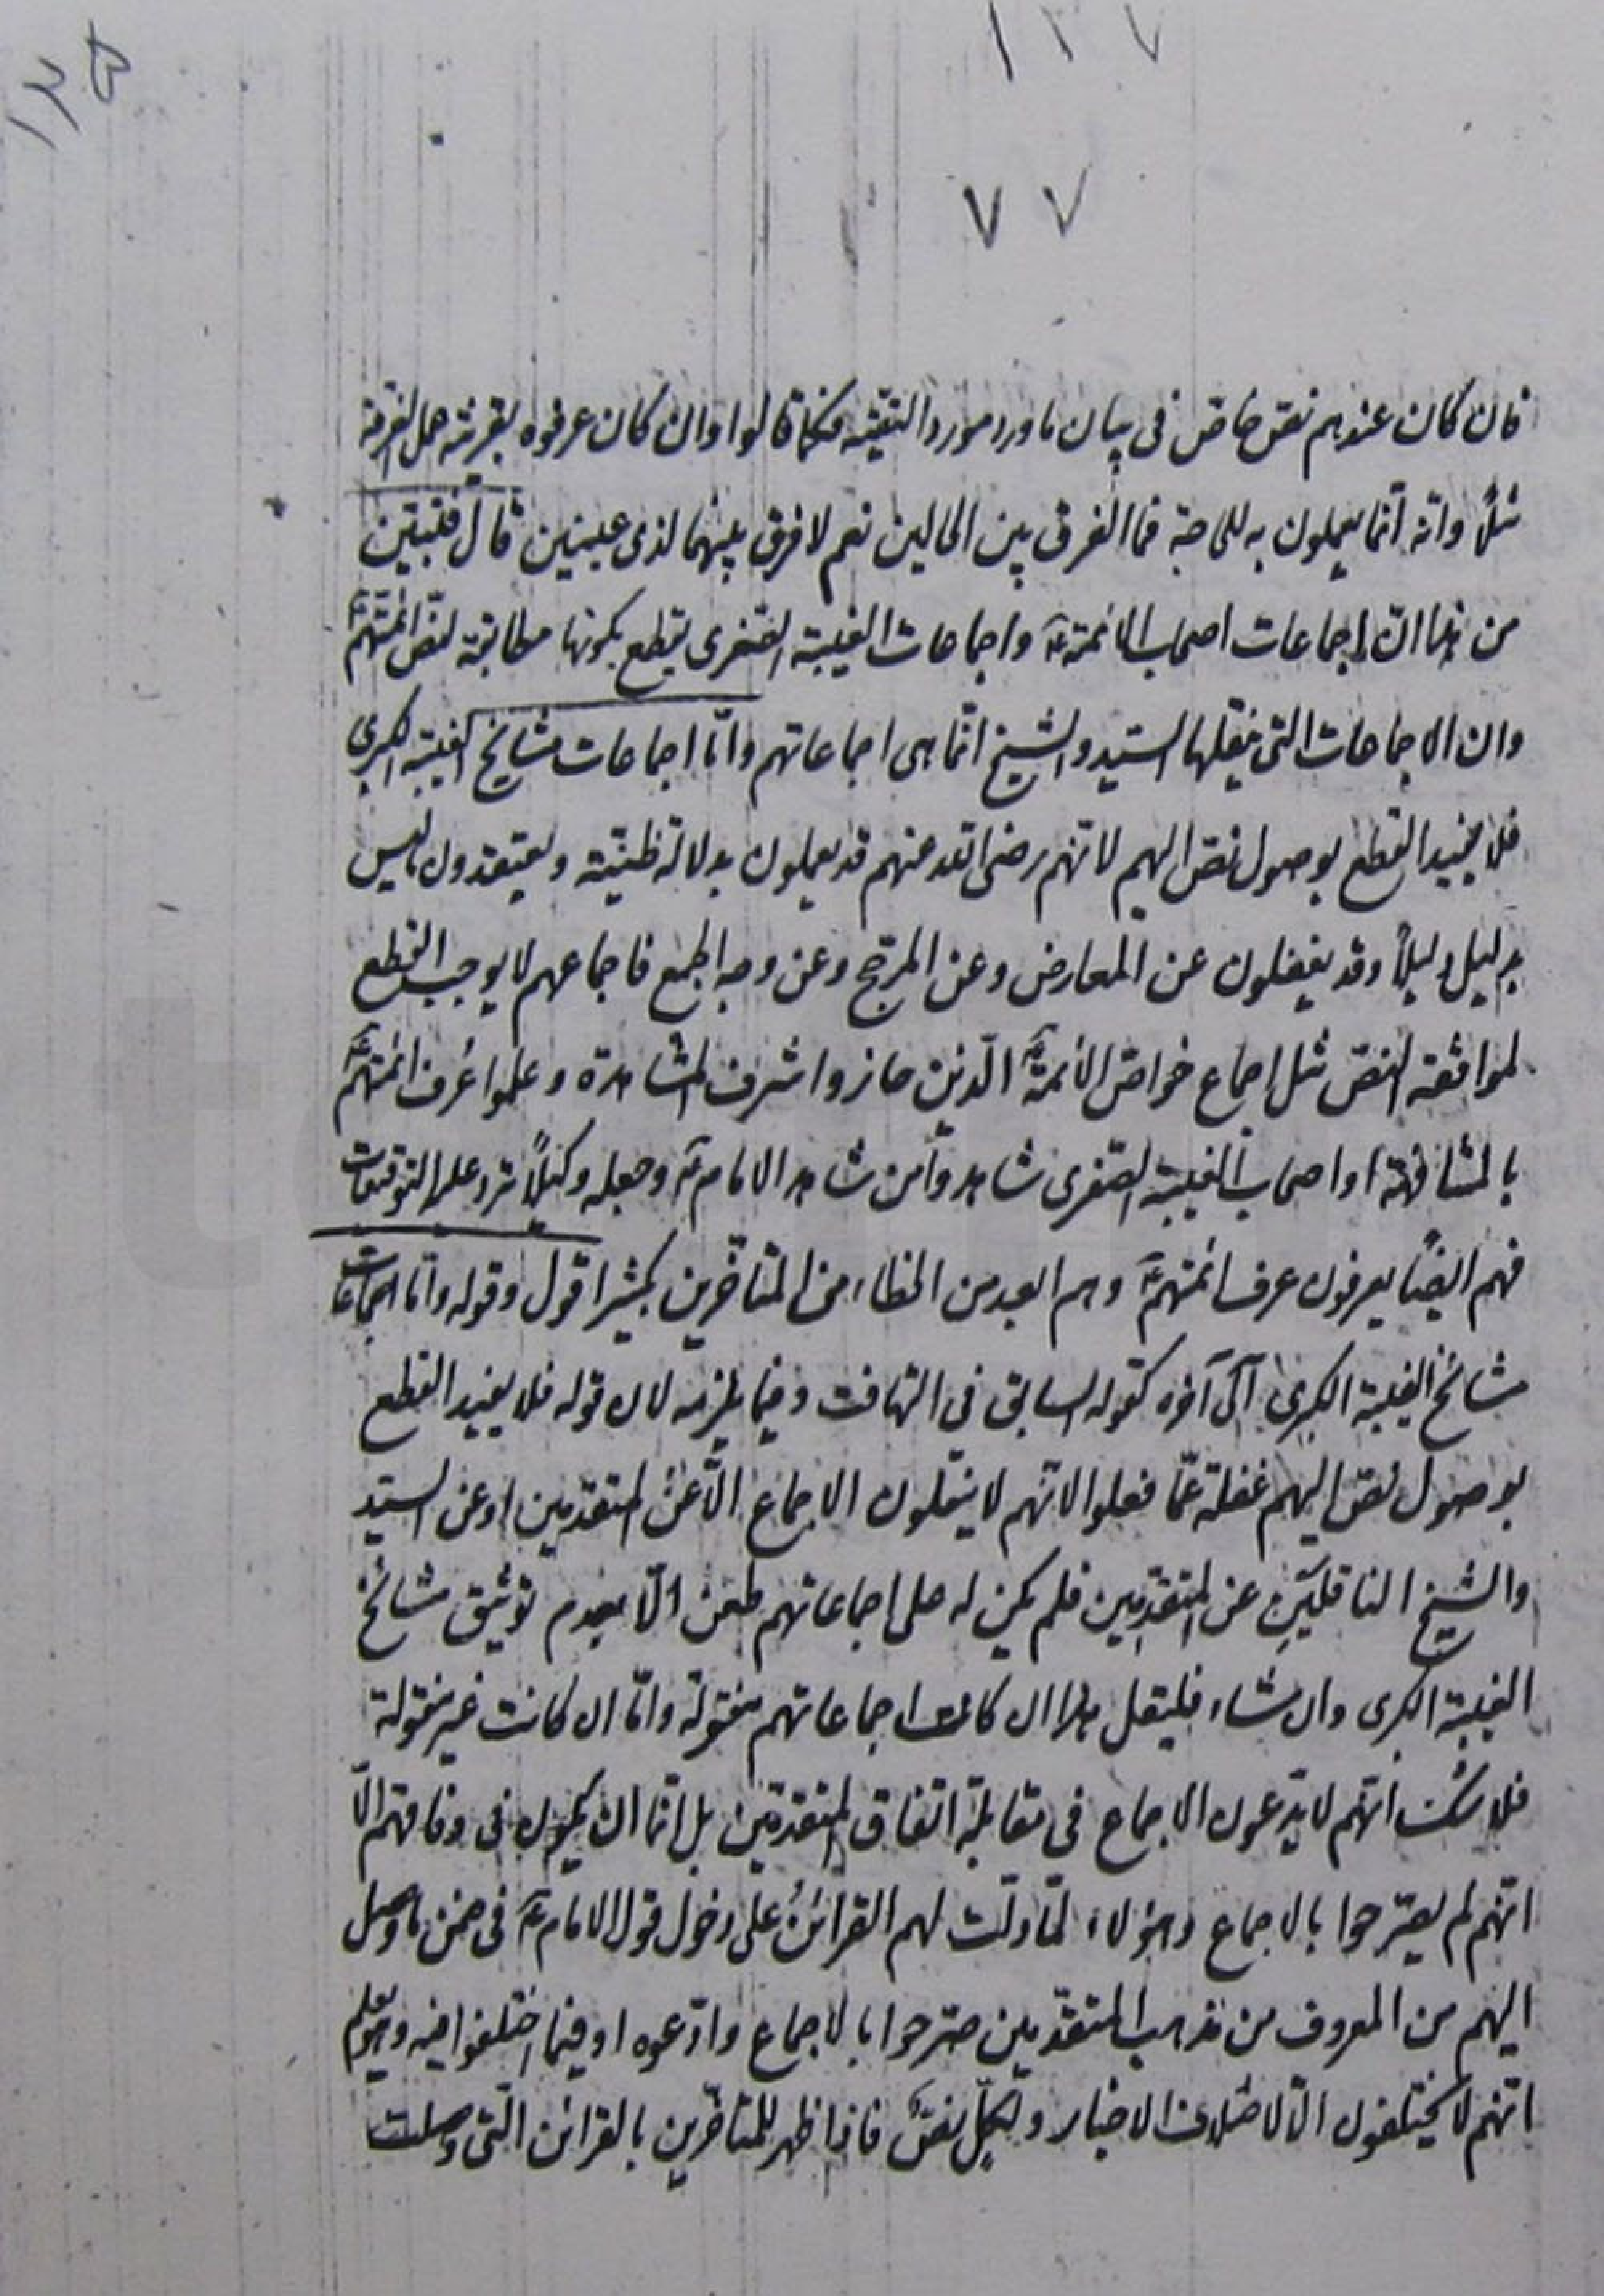 ١٢٧
١٢٥
٧٧
فان كان عندهم نص خاص فى بيان ما ورد مورد التقيّة فكما قالوا وان كان عرفوه بقرينة عمل الفرقة
مثلًا وانّه انّما يعملون به للحاجة فما الفرق بين الحالين نعم لا فرق بينهما لذى عينين قال فتبيّن
من هذا انّ اجماعات اصحاب الائمة ع واجماعات الغيبة الصّغرى يقطع بكونها مطابقة لنصّ ائمّتهم ع
وان الاجماعات التى ينقلها السيّد والشيخ انّما هى اجماعاتهم وامّا اجماعات مشايخ الغيبة الكبرى
فلا يفيد القطع بوصول نصّ اليهم لانّهم رضى الله عنهم قد يعملون بدلالة ظنيّة ويعتقدون ما ليس
بدليل دليلًا وقد يغفلون عن المعارض وعن المرجّح وعن وجه الجمع فاجماعهم لا يوجب القطع
لموافقة النصّ مثل اجماع خواصّ الائمة ع الّذين حازوا شرف المشاهدة وعلموا عُرف ائمّتهم ع
بالمشافهة او اصحاب الغيبة الصّغرى شاهدوا من شاهد الامام ع وجعله وكيلًا ترد عليه التوقيعات
فهم ايضًا يعرفون عرف ائمتهم ع وهم ابعد من الخطاء من المتأخّرين بكثير اقول وقوله وامّا اجماعات
مشائخ الغيبة الكبرى الى آخره كقوله السابق فى التهافت وفيما يلزمه لان قوله فلا يفيد القطع
بوصول نصّ اليهم غفلة عمّا فعلوا لانّهم لا ينقلون الاجماع الّا عن المتقدّمين او عن السيّد
والشيخ الناقلَين عن المتقدّمين فلم يكن له على اجماعاتهم طعن الّا بعدم توثيق مشائخ
الغيبة الكبرى وان شاء فليقل هذا ان كانت اجماعاتهم منقولة وامّا ان كانت غير منقولة
فلا شك انّهم لا يدّعون الاجماع فى مقابلة اتفاق المتقدّمين بل امّا ان يكون فى وفاقهم الّا
انّهم لم يصرّحوا بالاجماع وهؤلاء لمّا دلّت لهم القرائنُ على دخول قول الامام ع فى ضمن ما وصل
اليهم من المعروف من مذهب المتقدّمين صرّحوا بالاجماع وادّعوه او فيما اختلفوا فيه ويعلم
انّهم لا يختلفون الّا لاختلاف الاخبار ولكلٍّ نصّ فاذا ظهر للمتاخّرين بالقرائن الّتى وصلت